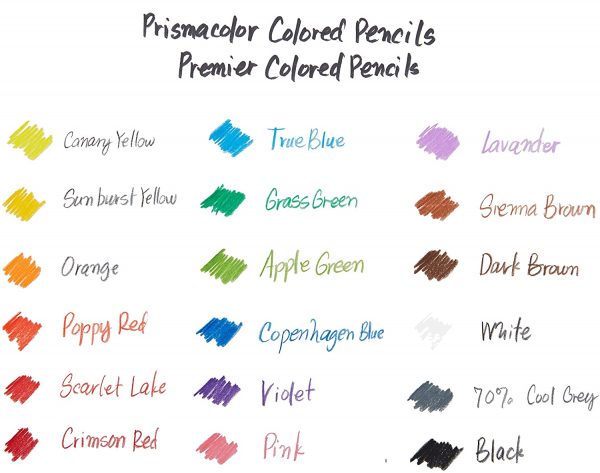 Prismacolor Colored Pencils
Premier Colored Pencils
Canary Yellow
Sunburst Yellow
Orange
Poppy Red
Scarlet Lake
Crimson Red
True Blue
Grass Green
Apple Green
Copenhagen Blue
Violet
Pink
Lavander
Sienna Brown
Dark Brown
White
70% Cool Grey
Black